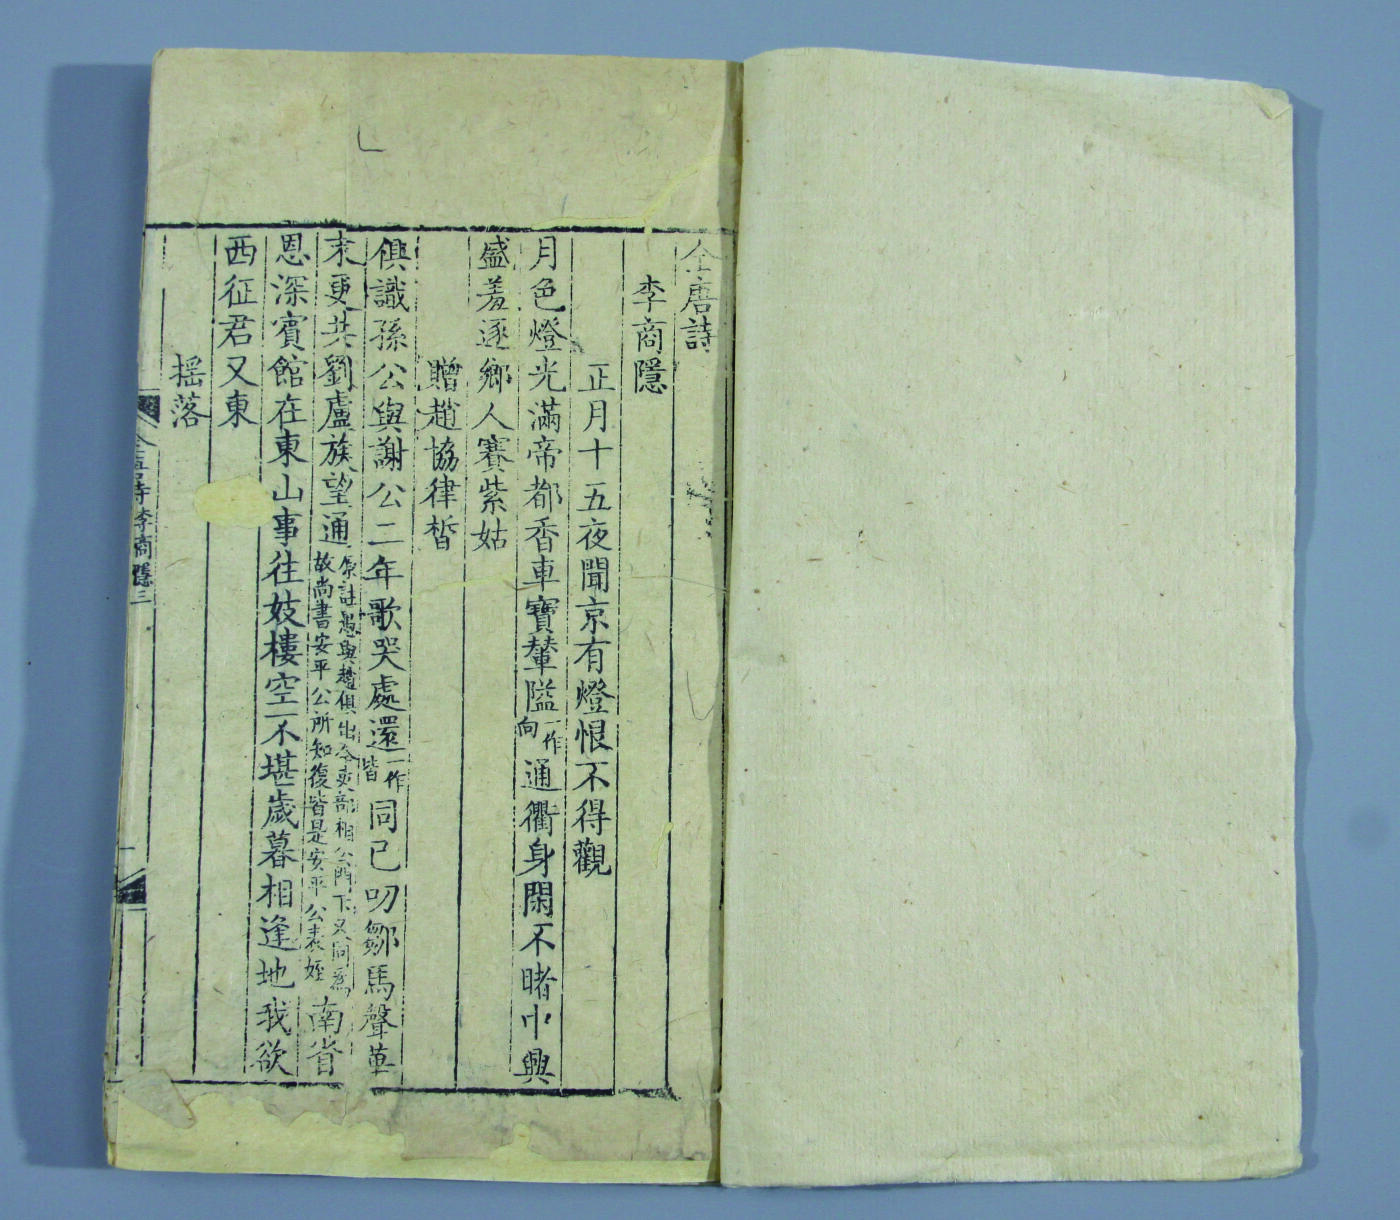 全唐詩
李商隱
正月十五夜聞京有燈恨不得觀
月色燈光滿帝都香車寶輦隘一作向通衢身閑不睹中興
盛羞逐鄉人賽紫姑
贈趙協律晳
俱識孫公與謝公二年歌哭處還一作皆同已叨鄒馬聲華
末更共劉盧族望通原註愚與趙俱出今吏部相公門下又同爲故尚書安平公所知復皆是安平公表姪南省
恩深賓館在東山事往妓樓空不堪歲暮相逢地我欲
西征君又東
搖落
全唐詩李商隱三